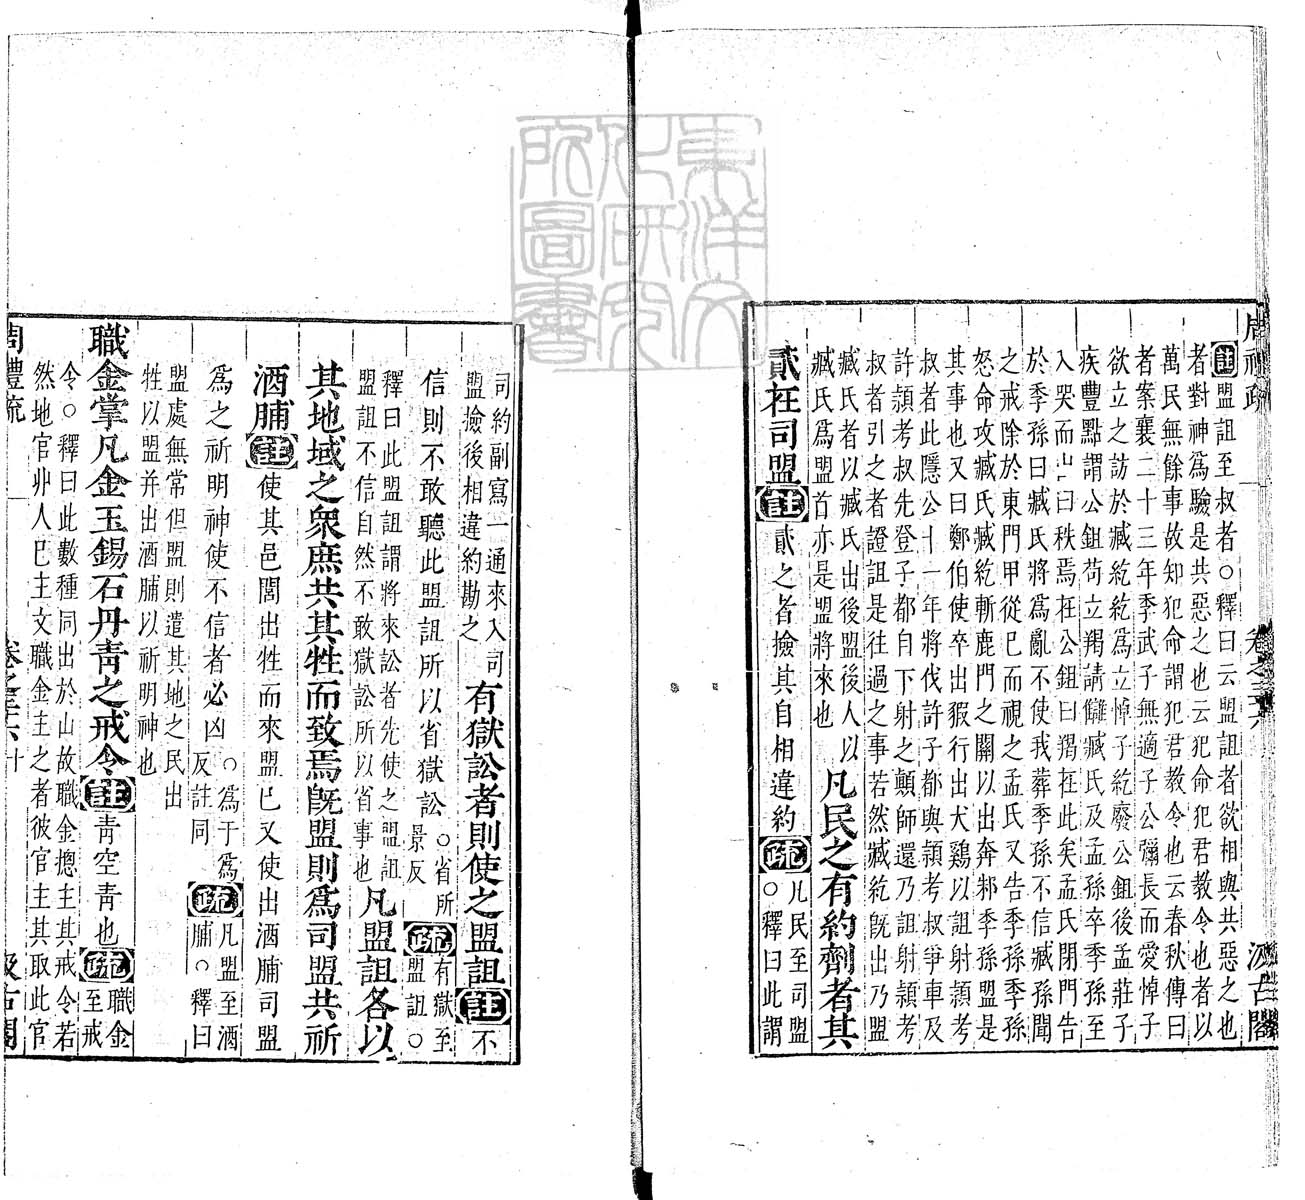 周禮疏 卷之三十六 汲古閣
註盟詛至叔者○釋曰云盟詛者欲相與共惡之也
者對神爲驗是共惡之也云犯命犯君教令也者以
萬民無餘事故知犯命謂犯君教令也云春秋傳曰
者案襄二十三年季武子無適子公彌長而愛悼子
欲立之訪於臧紇紇爲立悼子紇廢公鉏後孟莊子
疾豐點謂公鉏苟立羯請讎臧氏及孟孫卒季孫至
入哭而出曰秩焉在公鉏曰羯在此矣孟氏閉門告
於季孫曰臧氏將爲亂不使我葬季孫不信臧孫聞
之戒除於東門甲從已而視之孟氏又告季孫季孫
怒命攻臧氏臧紇斬鹿門之關以出奔邾季孫盟是
其事也又曰鄭伯使卒出豭行出犬鷄以詛射潁考
叔者此隱公十一年將伐許子都與潁考叔爭車及
許潁考叔先登子都自下射之顛師還乃詛射潁考
叔者引之者證詛是往過之事若然臧紇旣出乃盟
臧氏者以臧氏出後盟後人以
臧氏爲盟首亦是盟將來也
凡民之有約劑者其
貳在司盟註貳之者撿其自相違約疏凡民至司盟
○釋曰此謂
司約副寫一通來入司
盟撿後相違約勘之
有獄訟者則使之盟詛註不
信則不敢聽此盟詛所以省獄訟○省所
景反
疏有獄至
盟詛○
釋曰此盟詛謂將來訟者先使之盟詛
盟詛不信自然不敢獄訟所以省事也
凡盟詛各以
其地域之衆庶共其牲而致焉旣盟則爲司盟共祈
酒脯註使其邑閭出牲而來盟已又使出酒脯司盟
爲之祈明神使不信者必凶○爲于爲
反註同
疏凡盟至酒
脯○釋曰
盟處無常但盟則遣其地之民出
牲以盟并出酒脯以祈明神也
職金掌凡金玉錫石丹青之戒令註青空青也疏職金
至戒
令○釋曰此數種同出於山故職金總主其戒令若
然地官丱人已主文職金主之者彼官主其取此官
周禮疏 卷之三十六 十 汲古閣
東洋文化研究所圖書